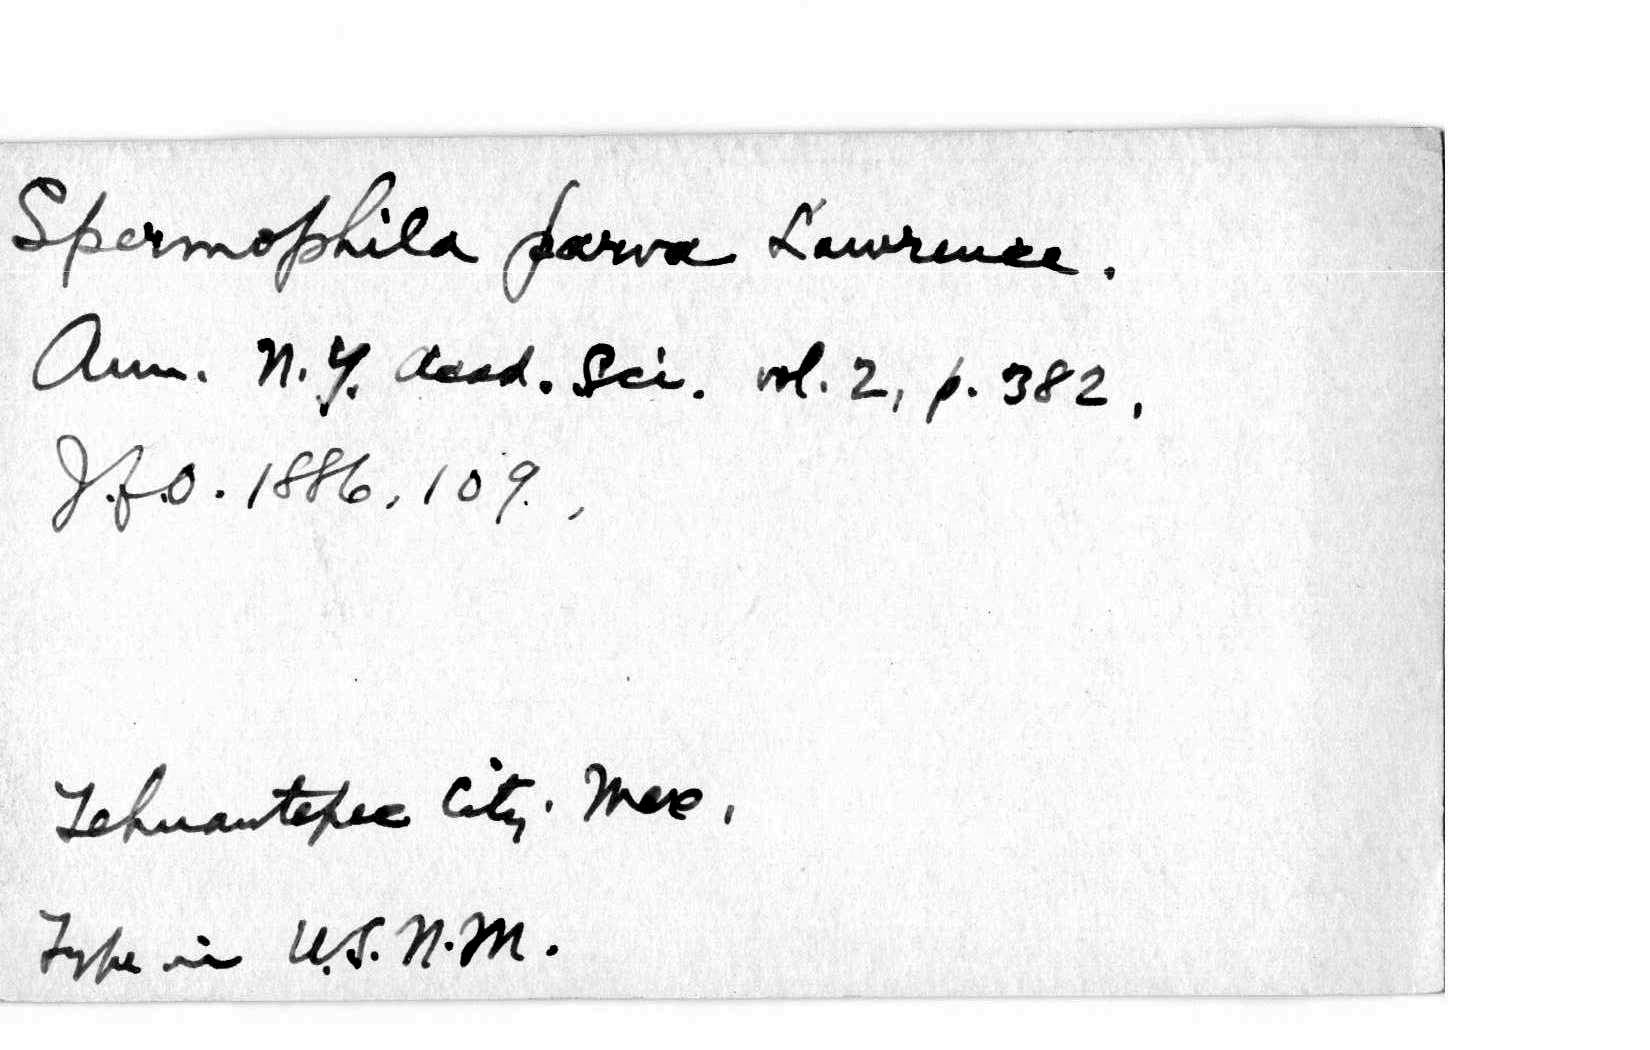 Spermophila parva Lawrence.
Ann. N.Y. Acad. Sci. vol. 2, p. 382,
J.f.O. 1886, 109.,
Tehuantepec City. Mex,
Type in U.S.N.M.